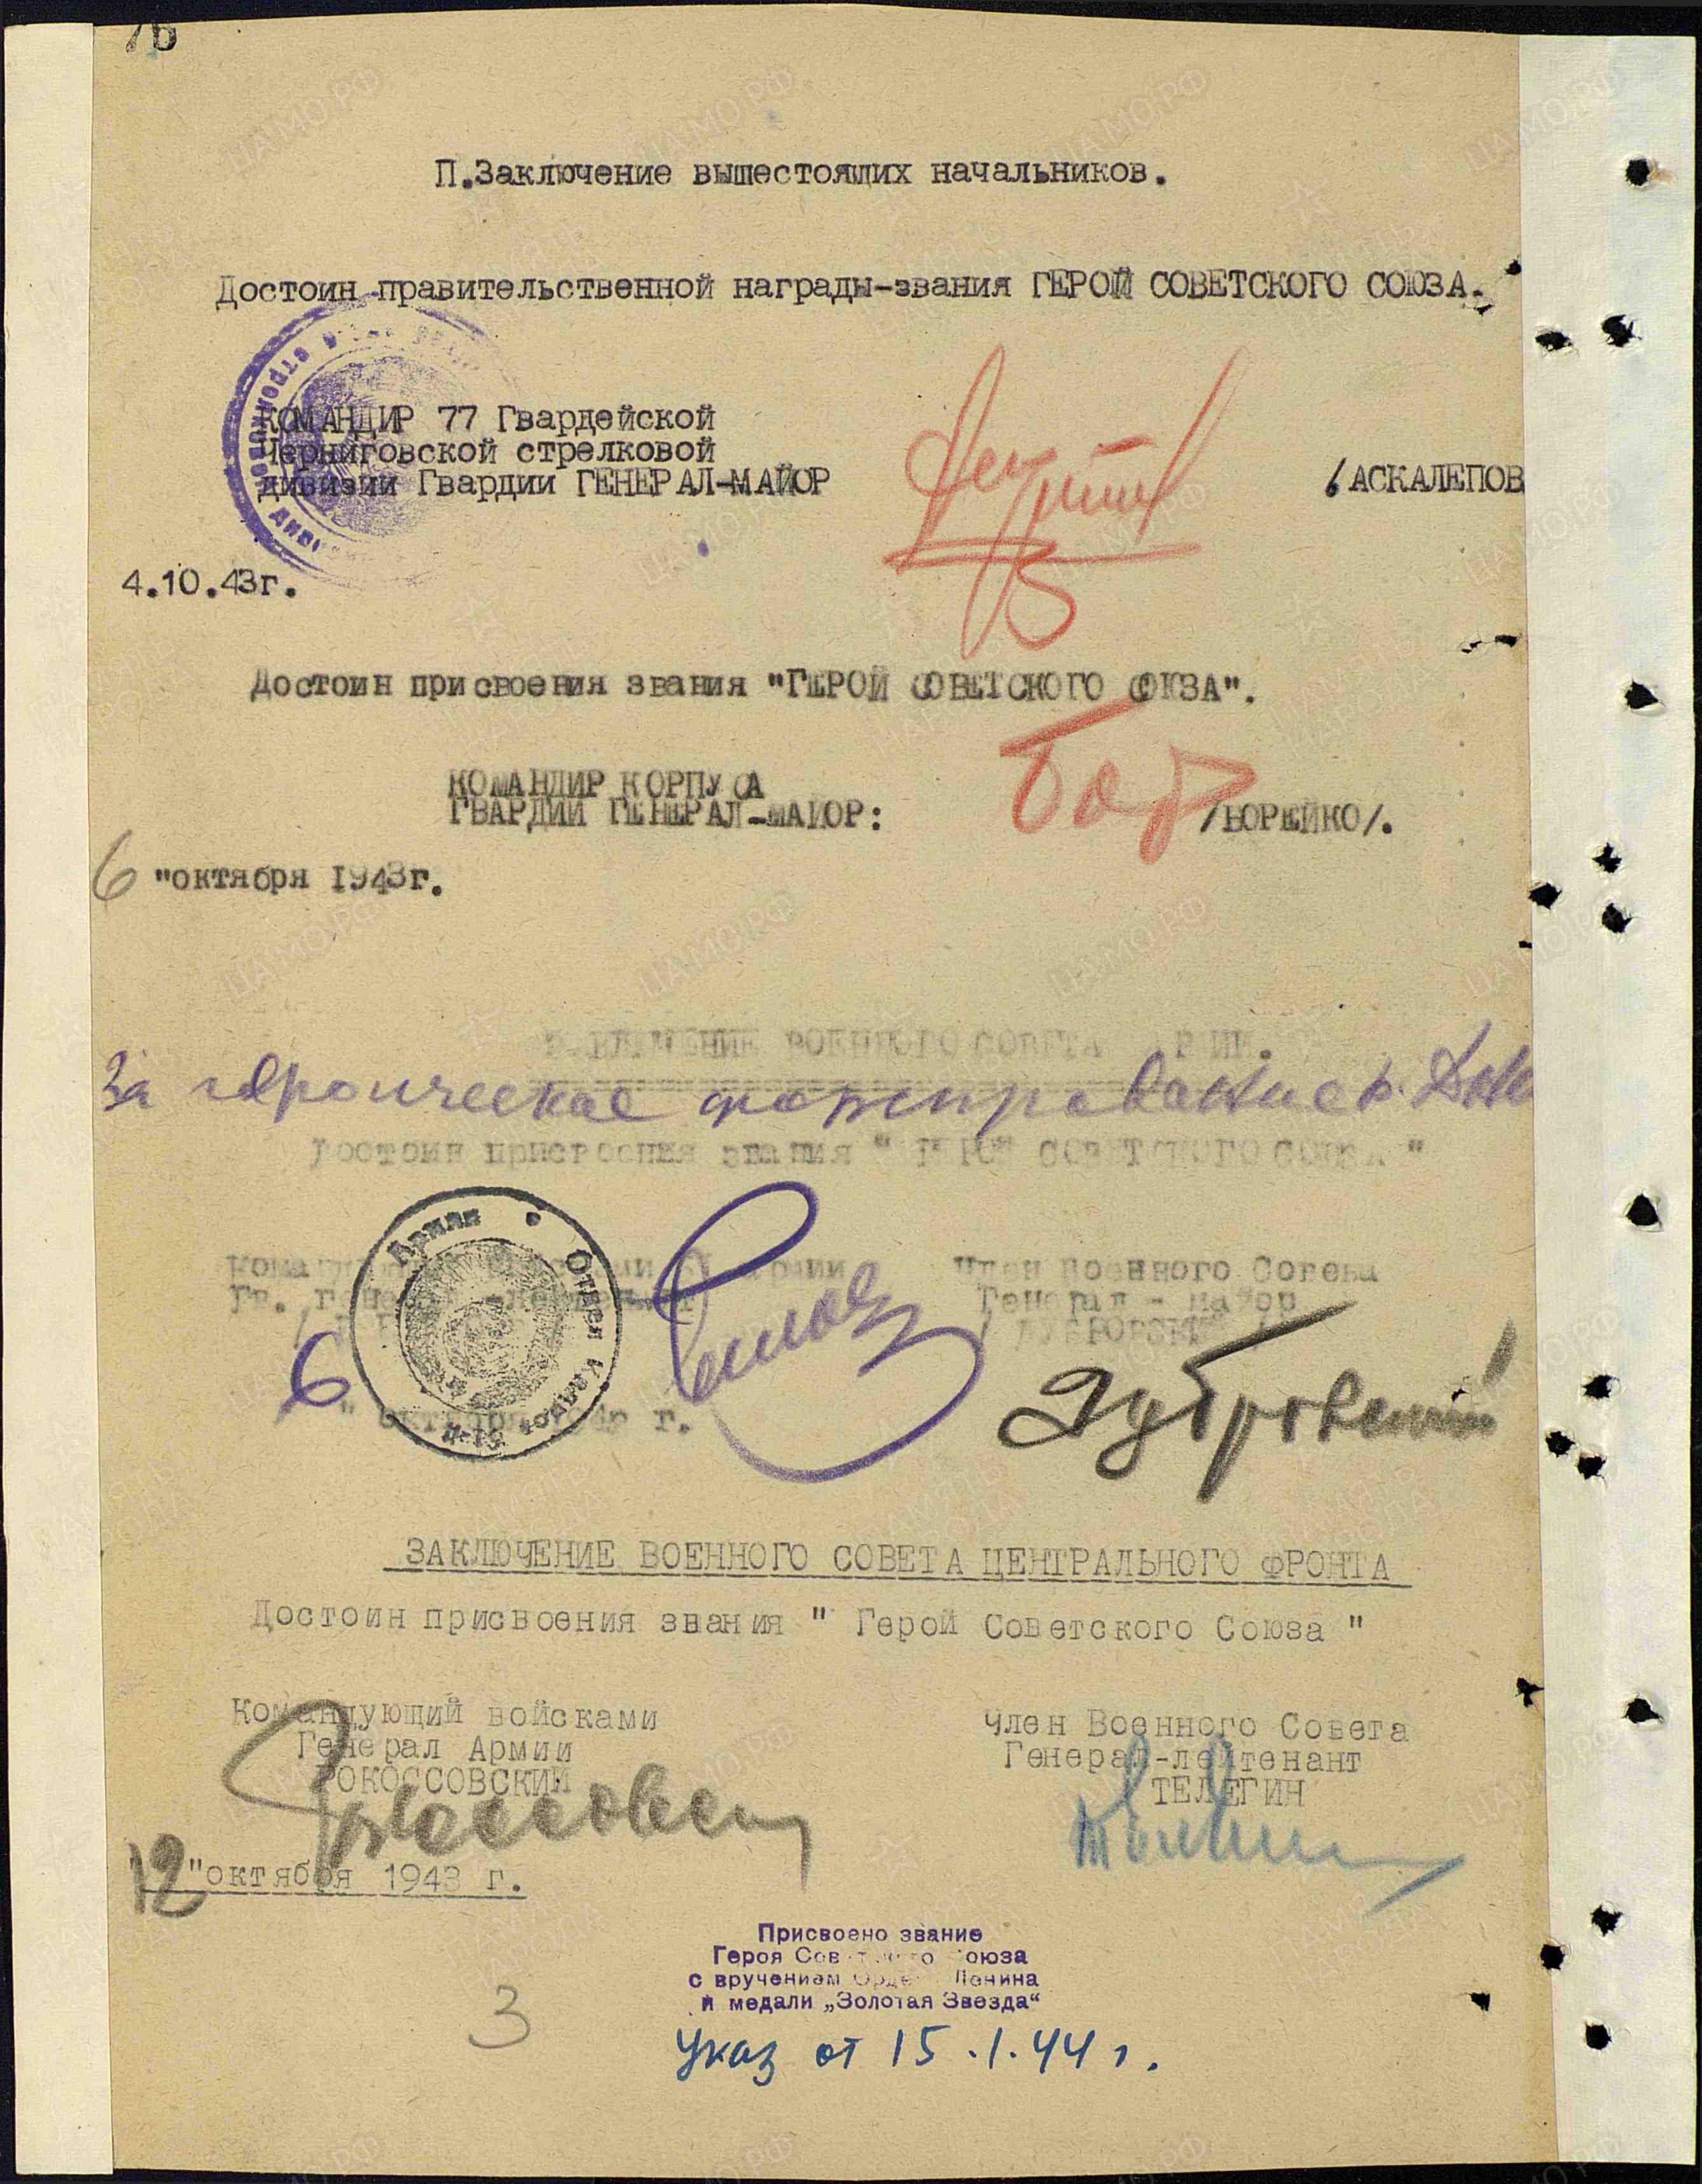 76
П.Заключение вышестоящих начальников.
Достоин правительственной награды-звания ГЕРОЙ СОВЕТСКОГО СОЮЗА.
КОМАНДИР 77 Гвардейской
Черниговской стрелковой
дивизии Гвардии ГЕНЕРАЛ-МАЙОР
/АСКАЛЕПОВ
4.10.43г.
Достоин присвоения звания "ГЕРОЙ СОВЕТСКОГО СОЮЗА".
КОМАНДИР КОРПУСА
ГВАРДИИ ГЕНЕРАЛ-МАЙОР:
Бор
/БОРЕЙКО/.
6 "октября 1943г.
ВОЕННОГО СОВЕТА
За героическое форсирование р.
Достоин присвоения звания " ГЕРОЙ СОВЕТСКОГО СОЮЗА "
армии
Член Военного Совета
Гв.
Генерал - майор
/ ДУБРОВСКИЙ /
Армии • Отдел Кадров
6 " октября г.
Дубровский
ЗАКЛЮЧЕНИЕ ВОЕННОГО СОВЕТА ЦЕНТРАЛЬНОГО ФРОНТА
Достоин присвоения звания " Герой Советского Союза "
Командующий войсками
Генерал Армии
РОКОССОВСКИЙ
Член Военного Совета
Генерал-лейтенант
ТЕЛЕГИН
12 "октября 1943 г.
Присвоено звание
Героя Советского Союза
с вручением Ордена Ленина
и медали „Золотая Звезда“
3
Указ от 15.1.44 г.